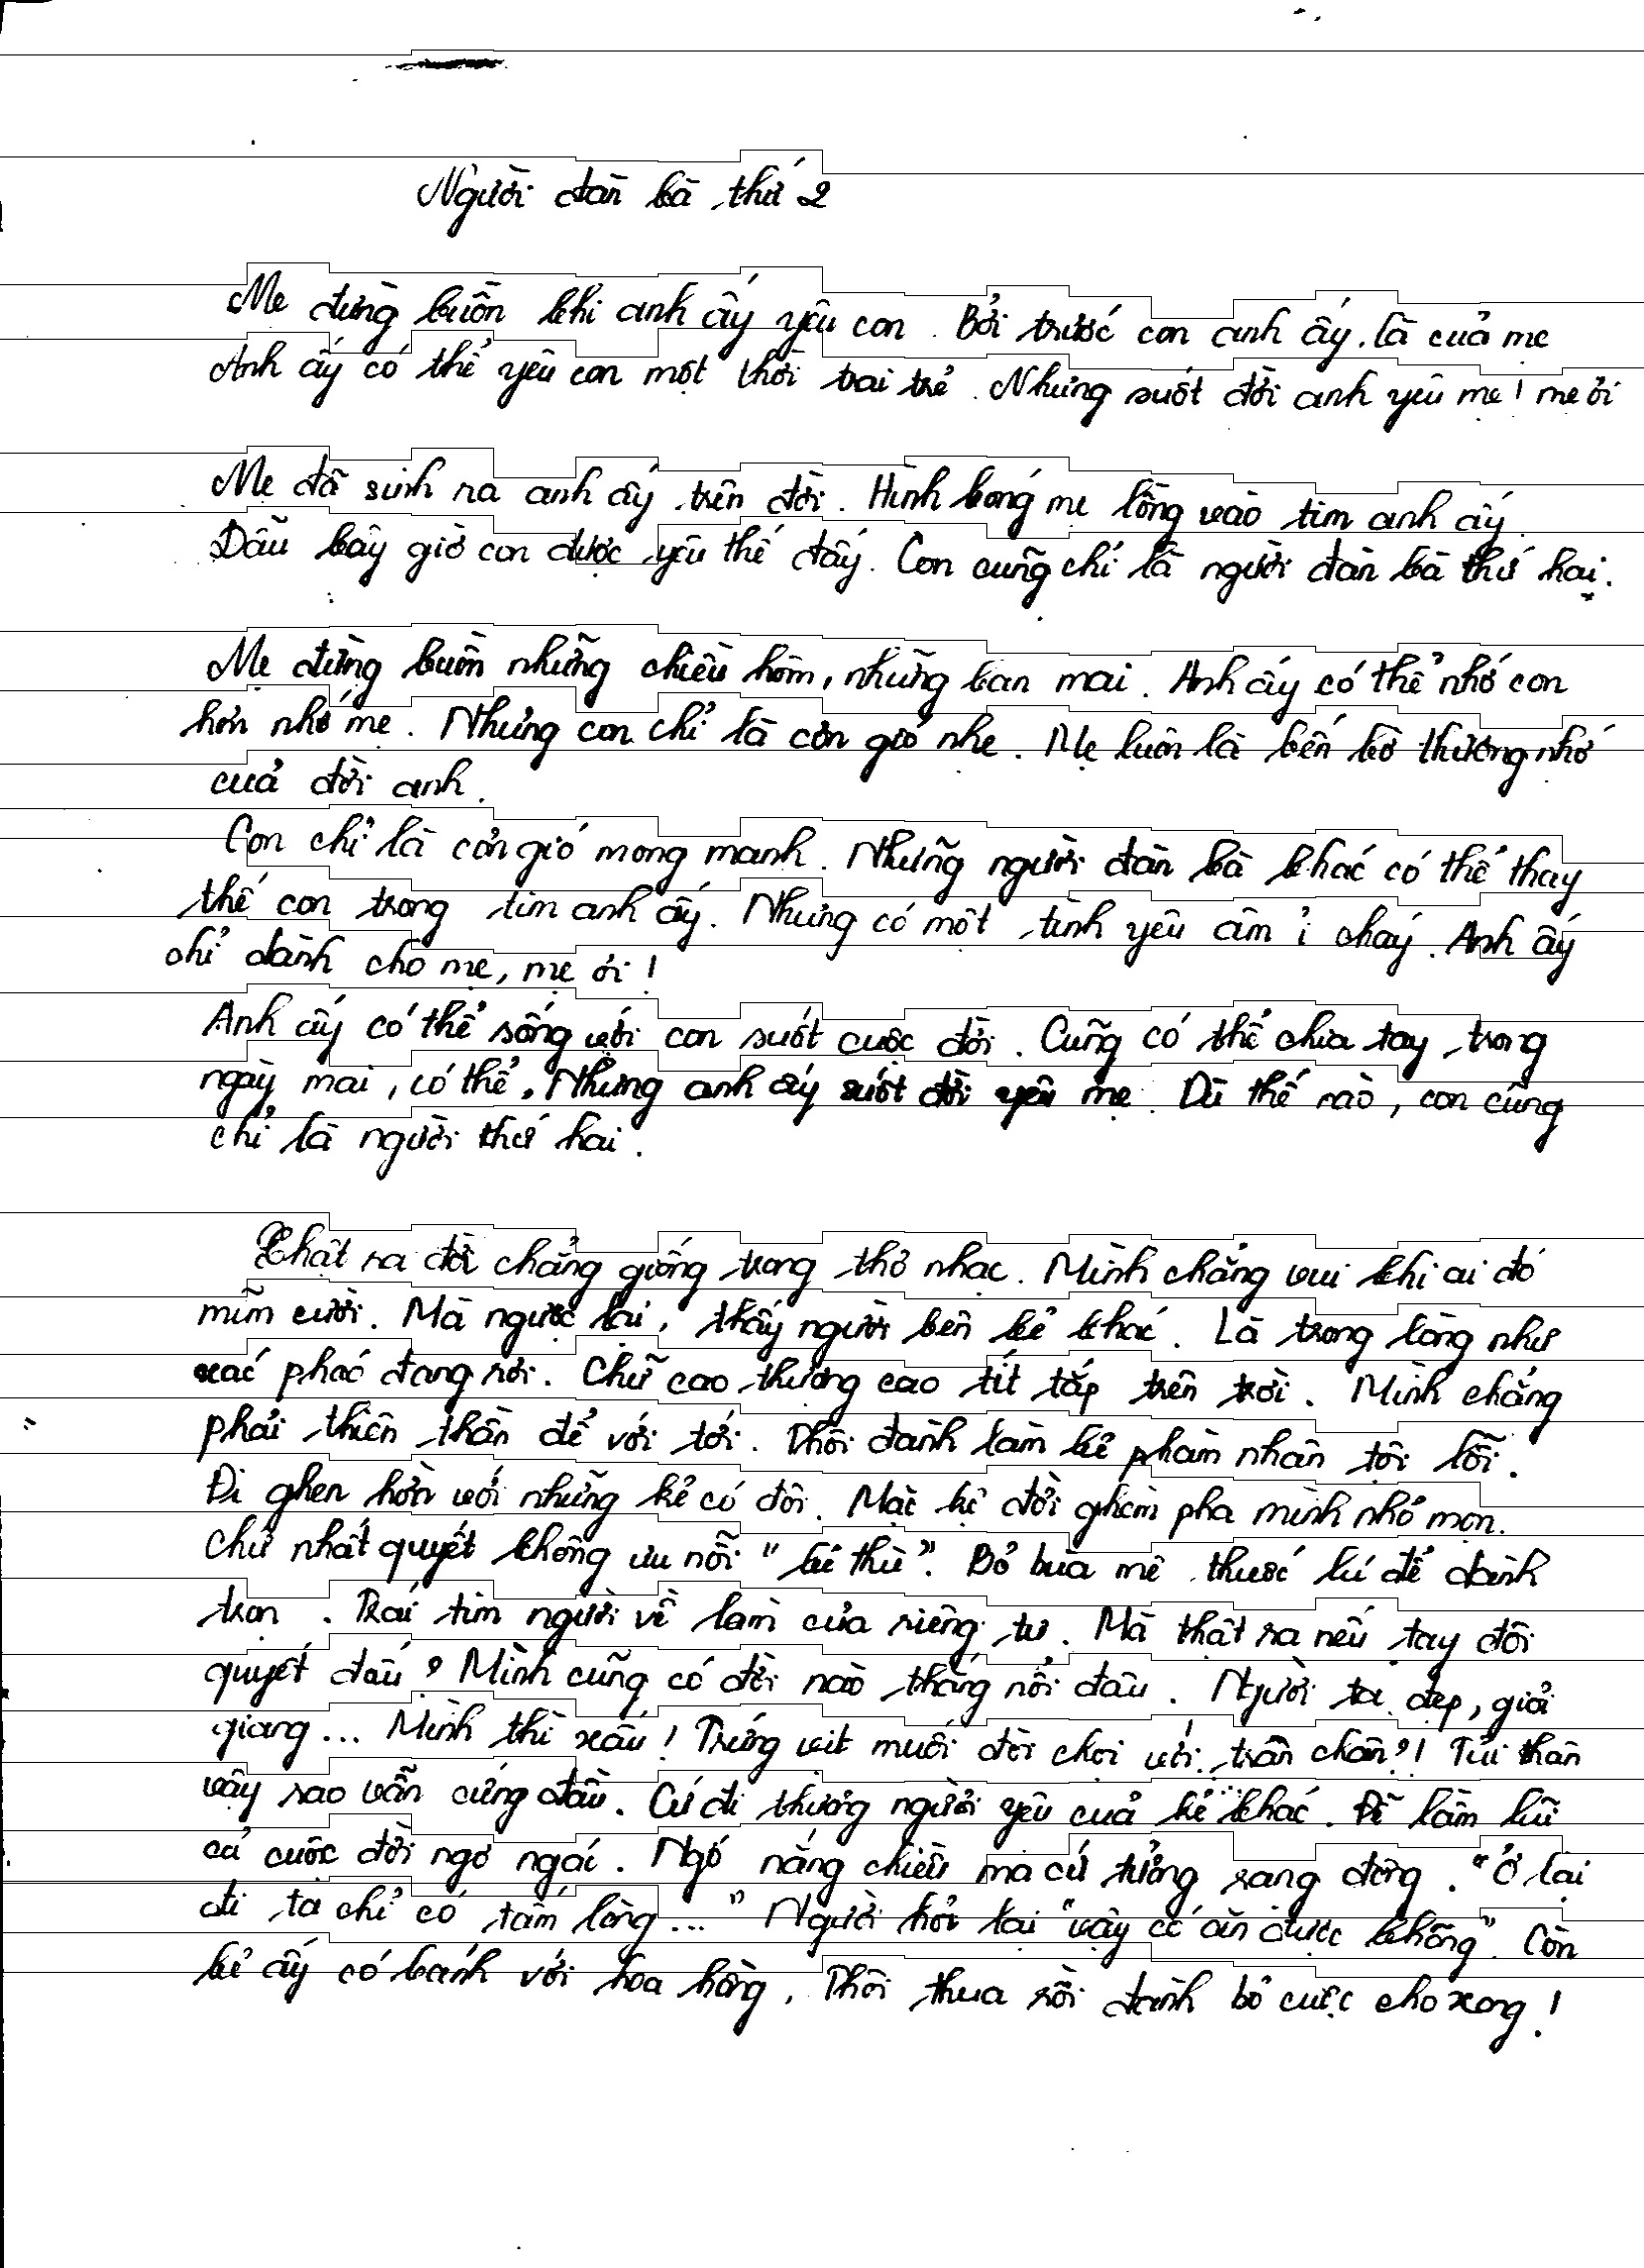 Người đàn bà thứ 2
Mẹ đừng buồn khi anh ấy yêu con. Bởi trước con anh ấy là của mẹ
Anh ấy có thể yêu con một thời trai trẻ. Nhưng suốt đời anh yêu mẹ! mẹ ơi
Mẹ đã sinh ra anh ấy trên đời. Hình bóng mẹ lồng vào tim anh ấy
Dẫu bây giờ con được yêu thế đấy. Con cũng chỉ là người đàn bà thứ hai.
Mẹ đừng buồn những chiều hôm, những ban mai. Anh ấy có thể nhớ con
hơn nhớ mẹ. Nhưng con chỉ là cơn gió nhẹ. Mẹ luôn là bến bờ thương nhớ
của đời anh.
Con chỉ là cơn gió mong manh. Những người đàn bà khác có thể thay
thế con trong tim anh ấy. Nhưng có một tình yêu âm ỉ cháy. Anh ấy
chỉ dành cho mẹ, mẹ ơi!
Anh ấy có thể sống với con suốt cuộc đời. Cũng có thể chia tay trong
ngày mai, có thể. Nhưng anh ấy suốt đời yêu mẹ. Dù thế nào, con cũng
chỉ là người thứ hai.
Thật ra đời chẳng giống trong thơ nhạc. Mình chẳng vui khi ai đó
mỉm cười. Mà ngược lại, thấy người bên kẻ khác. Là trong lòng như
xác pháo đang rơi. Chữ cao thượng cao tít tắp trên trời. Mình chẳng
phải thiên thần để với tới. Thôi đành làm kẻ phàm nhân tội lỗi.
Đi ghen hờn với những kẻ có đôi. Mặc kệ đời ghèm pha mình nhỏ mọn.
Chứ nhất quyết không ưu nỗi "kẻ thù". Bỏ bùa mê thuốc lú để dành
trọn. Trái tim người về làm của riêng tư. Mà thật ra nếu tay đôi
quyết đấu? Mình cũng có đời nào thắng nổi đâu. Người ta đẹp, giỏi
giang... Mình thì xấu! Trứng vịt muối đòi chơi với trân châu?! Tủi thân
vậy sao vẫn cứng đầu. Cứ đi thương người yêu của kẻ khác. Để lầm lũi
cả cuộc đời ngơ ngác. Ngó nắng chiều mà cứ tưởng rạng đông. "Ở lại
đi ta chỉ có tấm lòng..." Người hỏi lại "vậy có ăn được không". Còn
kẻ ấy có bánh với hoa hồng. Thôi thua rồi đành bỏ cuộc cho xong!